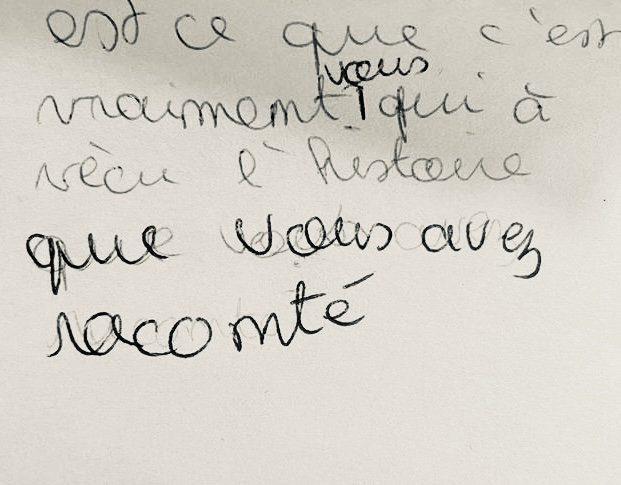 est ce que c'est
vraiment vous qui à
vècu l'histoire
que vous avez
racomté